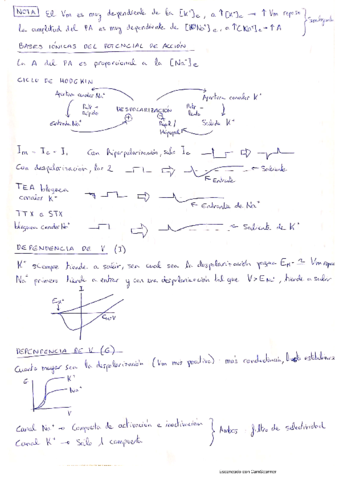 NOTA: El Vm es muy dependiente de la [K⁺]e, a ↑[K⁺]e → ↑ Vm reposo
La amplitud del PA es muy dependiente de [Na⁺]e, a ↑[Na⁺]e → ↑A
BASES IÓNICAS DEL POTENCIAL DE ACCIÓN
La A del PA es proporcional a la [Na⁺]e
CICLO DE HODGKIN
Apertura canales Na⁺
Apertura canales K⁺
DESPOLARIZACIÓN
Entrada Na⁺
Salida K⁺
Im = Ic + Ii Con hiperpolarización, solo Ic
Con despolarización, los 2
Saliente
Entrante
TEA bloquea
canales K⁺
Entrante de Na⁺
TTX o STX
bloquean canales Na⁺
Saliente de K⁺
DEPENDENCIA DE V (I)
K⁺ siempre tiende a salir, sea cual sea la despolarización porque EK⁺ ≈ Vm reposo
Na⁺ primero tiende a entrar y con una despolarización tal que V > ENa⁺, tiende a salir
EK⁺
ENa⁺
V
DEPENDENCIA DE V (G)
Cuanto mayor sea la despolarización (Vm más positivo) : más conductancia, hasta estabilizarse
G
K⁺
Na⁺
V
Canal Na⁺ → Compuerta de activación e inactivación
Canal K⁺ → Solo 1 compuerta
Ambos : filtro de selectividad
Escaneado con CamScanner